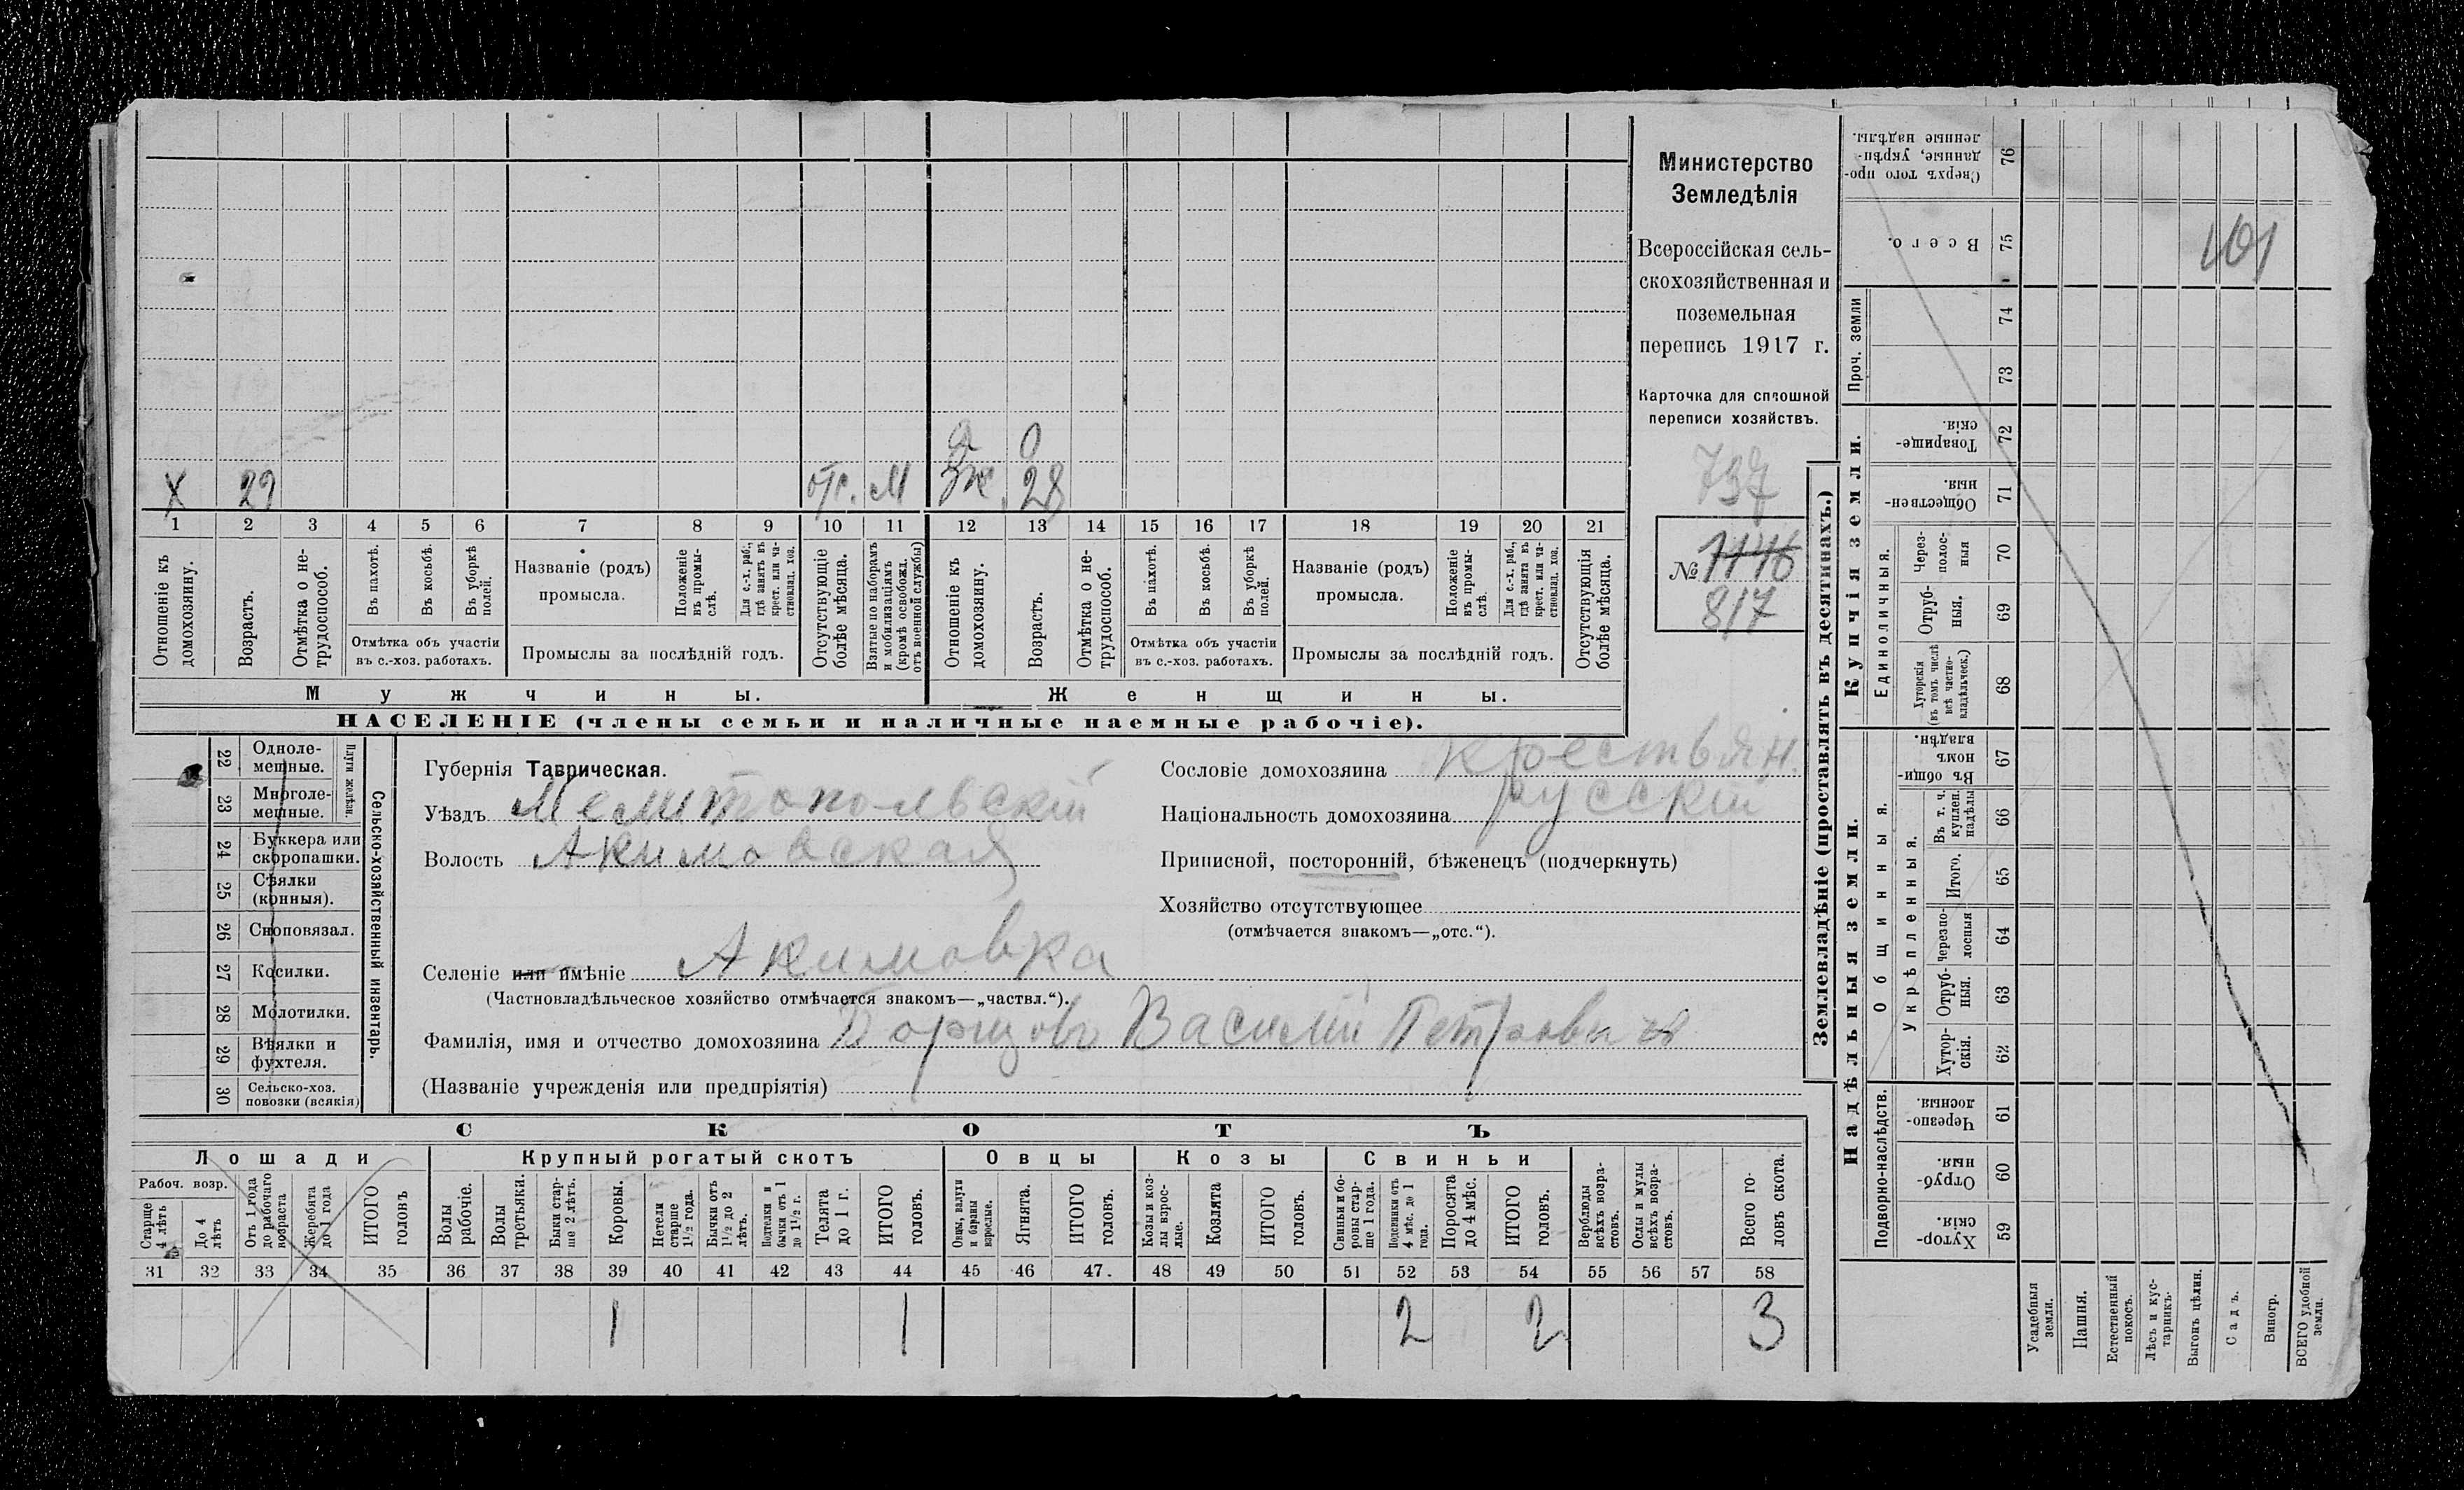 Х 29 отс. М ж 28
д 0
1 2 3 4 5 6 7 8 9 10 11 12 13 14 15 16 17 18 19 20 21
Отношеніе къ домохозяину.
Возрастъ.
Отмѣтка о нетрудоспособ.
Въ пахотѣ.
Въ косьбѣ.
Въ уборкѣ полей.
Отмѣтка объ участіи
въ с.-хоз. работахъ.
Названіе (родъ)
промысла.
Положеніе въ промыслѣ.
Для с.-х. раб., гдѣ занятъ въ крест. или частновлад. хоз.
Промыслы за послѣдній годъ.
Отсутствующіе болѣе мѣсяца.
Взятые по наборамъ и мобилизаціямъ (кромѣ освобожд. отъ военной службы)
Отношеніе къ домохозяину.
Возрастъ.
Отмѣтка о нетрудоспособ.
Въ пахотѣ.
Въ косьбѣ.
Въ уборкѣ полей.
Отмѣтка объ участіи
въ с.-хоз. работахъ.
Названіе (родъ)
промысла.
Положеніе въ промыслѣ.
Для с.-х. раб., гдѣ занята въ крест. или частновлад. хоз.
Промыслы за послѣдній годъ.
Отсутствующія болѣе мѣсяца.
Мужчины. Женщины.
НАСЕЛЕНІЕ (члены семьи и наличные наемные рабочіе).
Министерство
Земледѣлія
Всероссійская сель-
скохозяйственная и
поземельная
перепись 1917 г.
Карточка для сплошной
переписи хозяйствъ.
737
№ 1146
817
Сельско-хозяйственный инвентарь.
Плуги желѣзн.
22 Одноле-
мешные.
23 Многоле-
мешные.
24 Буккера или
скоропашки.
25 Сѣялки
(конныя).
26 Сноповязал.
27 Косилки.
28 Молотилки.
29 Вѣялки и
фухтеля.
30 Сельско-хоз.
повозки (всякія)
Губернія Таврическая.
Уѣздъ Мелитопольскій
Волость Акимовская
Селеніе или имѣніе Акимовка
(Частновладѣльческое хозяйство отмѣчается знакомъ—„частвл.“).
Фамилія, имя и отчество домохозяина Борщовъ Василій Петровичъ
(Названіе учрежденія или предпріятія)
Сословіе домохозяина крестьян.
Національность домохозяина русскій
Приписной, посторонній, бѣженецъ (подчеркнуть)
Хозяйство отсутствующее
(отмѣчается знакомъ—„отс.“).
СКОТЪ
Лошади Крупный рогатый скотъ Овцы Козы Свиньи
Рабоч. возр.
Старше 4 лѣтъ
До 4 лѣтъ
Отъ 1 года до рабочаго возраста
Жеребята до 1 года
ИТОГО головъ
Волы рабочіе.
Волы третьяки.
Быки старше 2 лѣтъ.
Коровы.
Нетели старше 1½ года.
Бычки отъ 1½ до 2 лѣтъ.
Подтелки и бычки отъ 1 до 1½ г.
Телята до 1 г.
ИТОГО головъ.
Овцы, валухи и бараны взрослые.
Ягнята.
ИТОГО головъ.
Козы и козлы взрослые.
Козлята
ИТОГО головъ.
Свиньи и боровы старше 1 года.
Подсвинки отъ 4 мѣс. до 1 года.
Поросята до 4 мѣс.
ИТОГО головъ.
Верблюды всѣхъ возрастовъ.
Ослы и мулы всѣхъ возрастовъ.
Всего головъ скота.
31 32 33 34 35 36 37 38 39 40 41 42 43 44 45 46 47. 48 49 50 51 52 53 54 55 56 57 58
1 1 2 2 3
Землевладѣніе (проставлять въ десятинахъ.)
Надѣльныя земли. Купчія земли. Проч. земли
Подворно-наслѣдств.
Общинныя.
Укрѣпленныя.
Единоличныя.
59 Хутор-
скія.
60 Отруб-
ныя.
61 Черезпо-
лосныя.
62 Хутор-
скія.
63 Отруб-
ныя.
64 Черезпо-
лосныя
65 Итого.
66 Въ т. ч. куплен. надѣлы
67 Въ общин-
номъ
владѣн.
68 Хуторскія (въ томъ числѣ всѣ частновладѣльческ.)
69 Отруб-
ныя.
70 Черезполосныя
71 Обществен-
ныя.
72 Товарище-
скія.
73
74
75 Всего.
76 Сверхъ того про-
данные, укрѣп-
ленные надѣлы.
Усадебныя земли.
Пашня.
Естественный покосъ.
Лѣсъ и кустарникъ.
Выгонъ цѣлин.
Садъ.
Виногр.
ВСЕГО удобной земли.